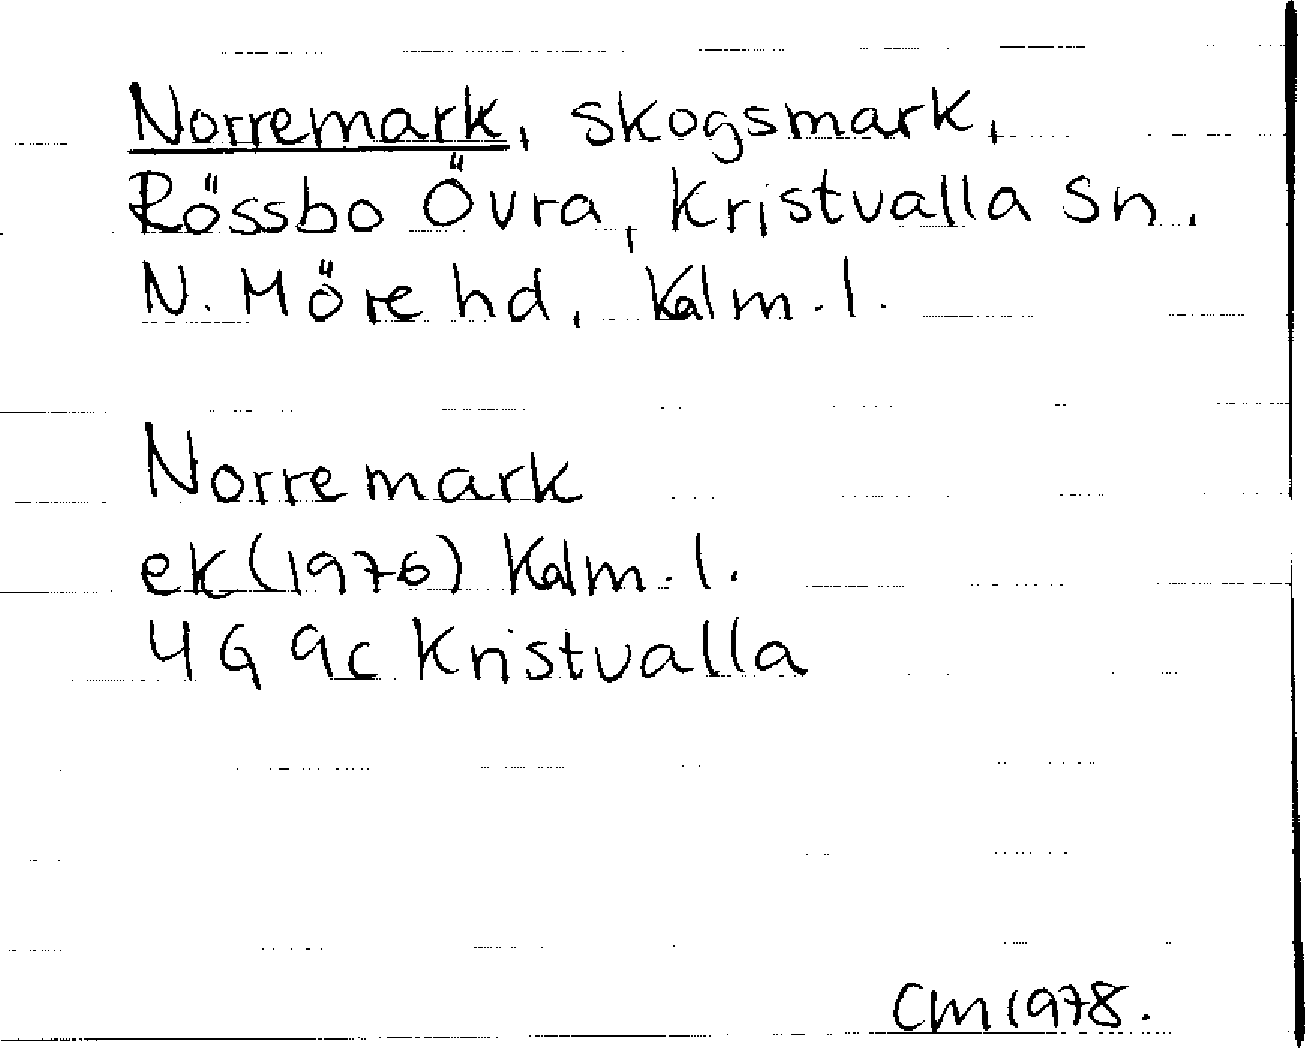 Norremark, skogsmark,
Rössbo Övra, Kristvalla Sn.
N. Möre hd, Kalm.l.
Norremark
ek(1976) Kalm.l.
4G 9c Kristvalla
CM 1978.